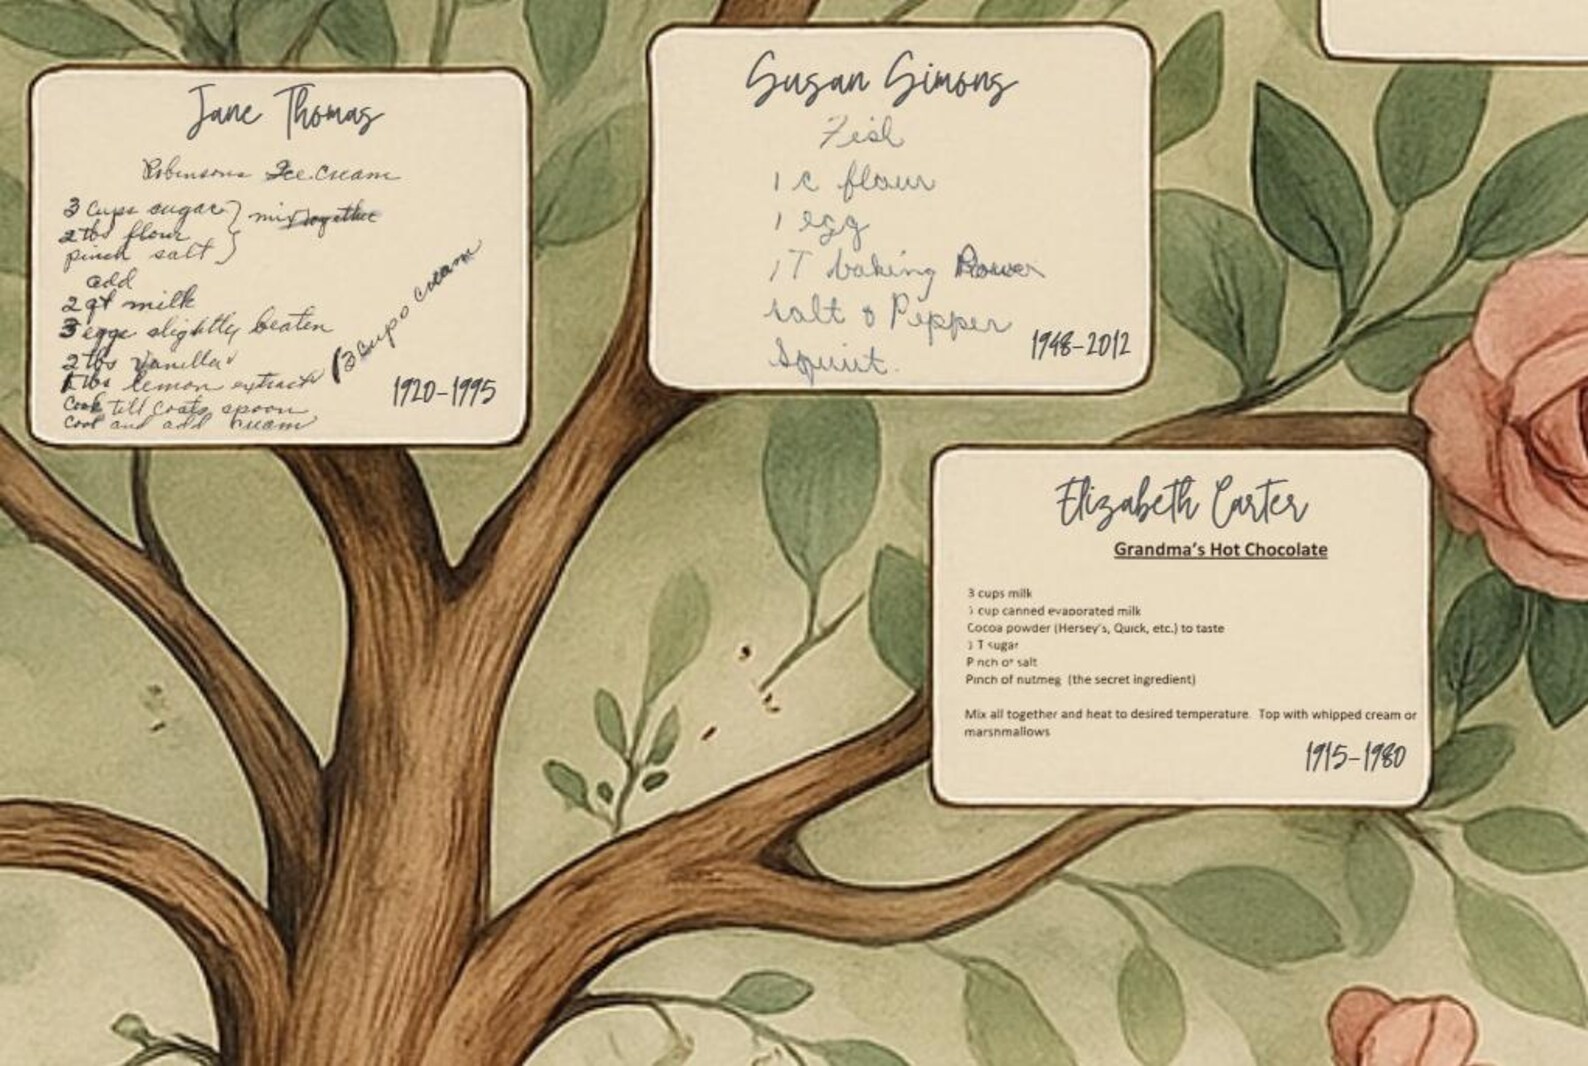 Jane Thomas
Robinsons Ice Cream
3 cups sugar } mix together
2 tbs flour
pinch salt
add
2 qt milk
3 eggs slightly beaten
2 tbs vanilla
1 tbs lemon extract
(3 cups cream
Cook till coats spoon
Cool and add cream
1920-1995
Susan Simons
Fish
1 c flour
1 egg
1 T baking Power
salt & Pepper
Squirt.
1948-2012
Elizabeth Carter
Grandma's Hot Chocolate
3 cups milk
1 cup canned evaporated milk
Cocoa powder (Hersey's, Quick, etc.) to taste
T sugar
Pinch of salt
Pinch of nutmeg (the secret ingredient)
Mix all together and heat to desired temperature. Top with whipped cream or
marshmallows
1915-1980